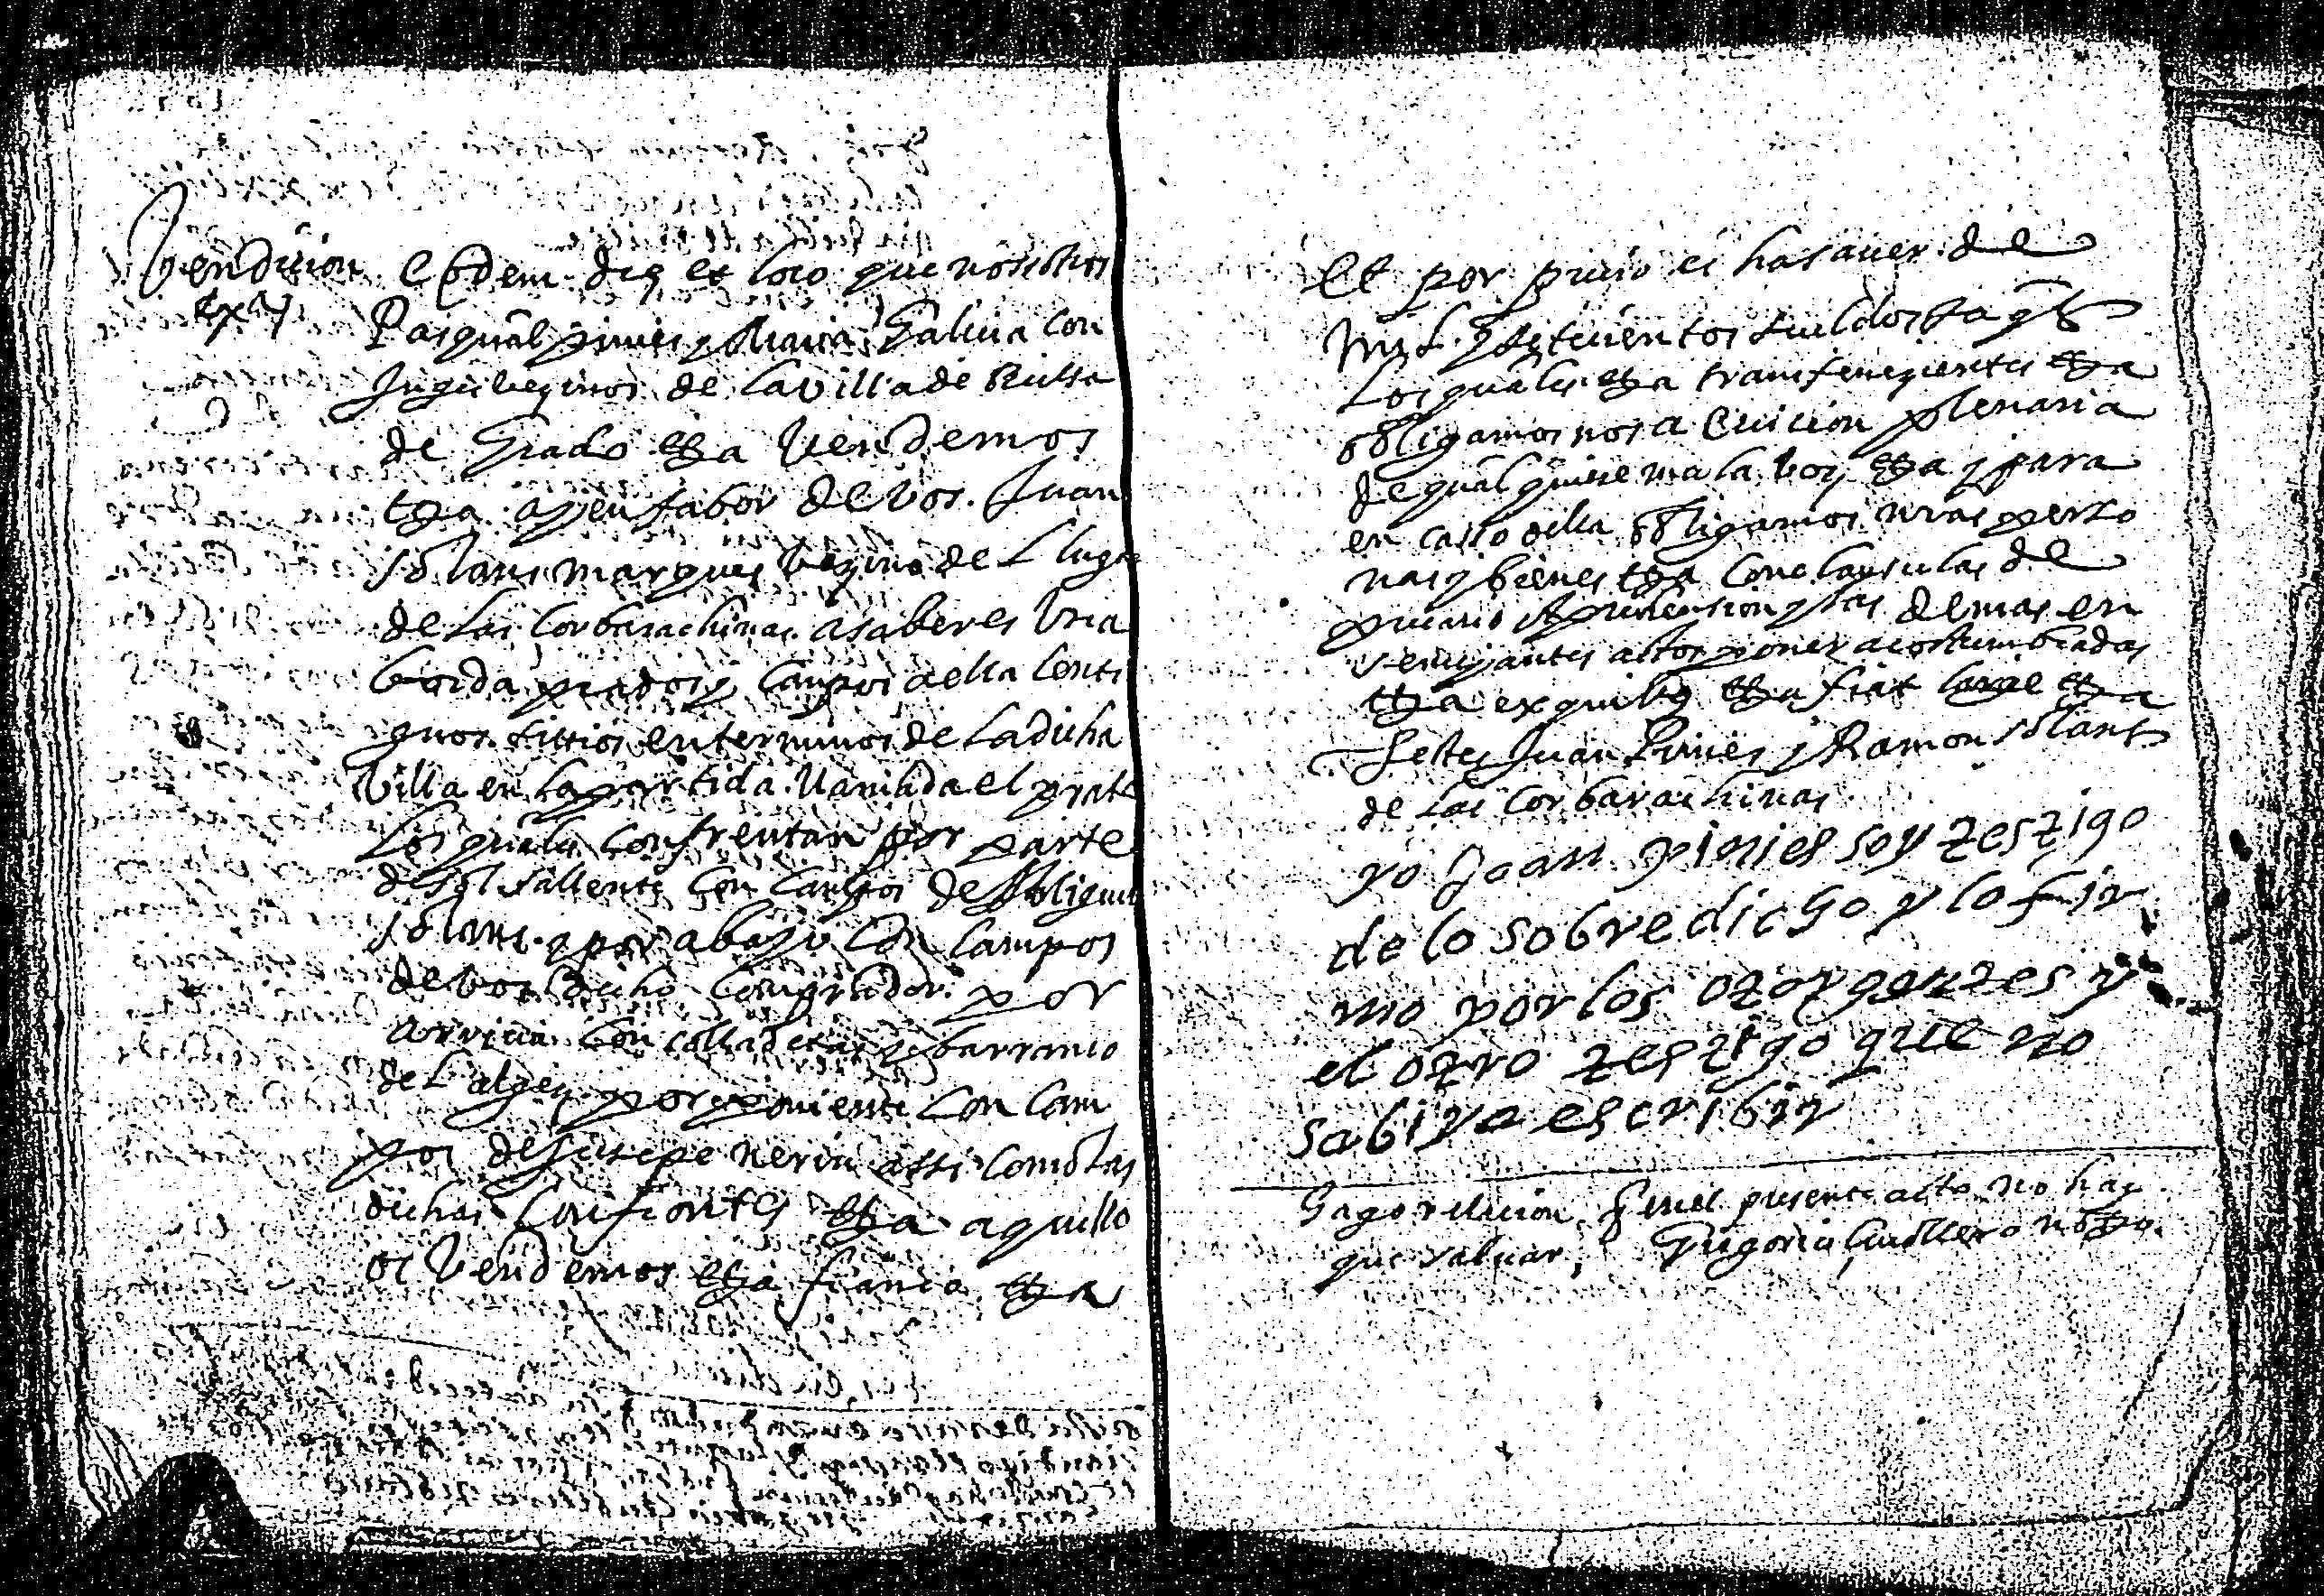 Vendicion
Eodem die et loco que nosotros
Pasqual pinies y Maria Galicia con
juges veçinos de la villa de
de Grado etza vendemos
etza a y en fabor de vos Juan
solans marques veçino de l lugar
de las Corbarachinas a saber es una
borda prados y campos a ella conti
guos sittios en terminos de la dicha
Villa en la partida llamada el prato
los quales confrentan por parte
de sol sallente con campos de Miguel
solans y por abajo con campos
de vos dicho comprador por
arriva con y barranco
de l por poniente con cam
pos de Jusepe assi como las
dichas confrontes etza aquello
os vendemos etza francio etza
et por precio es hasaver de
mil y setecientos sueldos jaqs
los quales etza transferezientes etza
obligamos nos a eviccion plenaria
de qual quiere mala voz etza y para
en casso della obligamos nras perso
nas y bienes etza con clausulas de
precario aprehension y las demas en
semejantes actos poner acostumbradas
etza ex quibus etza fiat large etza
Testes Juan Pinies y Ramon solans
de las Corbarachinas
yo Joan pinies soy testigo
de lo sobredicho y lo fir
mo por los otorgantes y
el otro testigo que no
sabiya escribir
Hago relacion q en el presente acto no hay
que salvar, Grigorio notro.